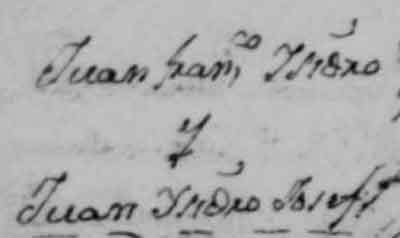 Juan Fran.co Ysidro
y
Juan Ysidro Josef